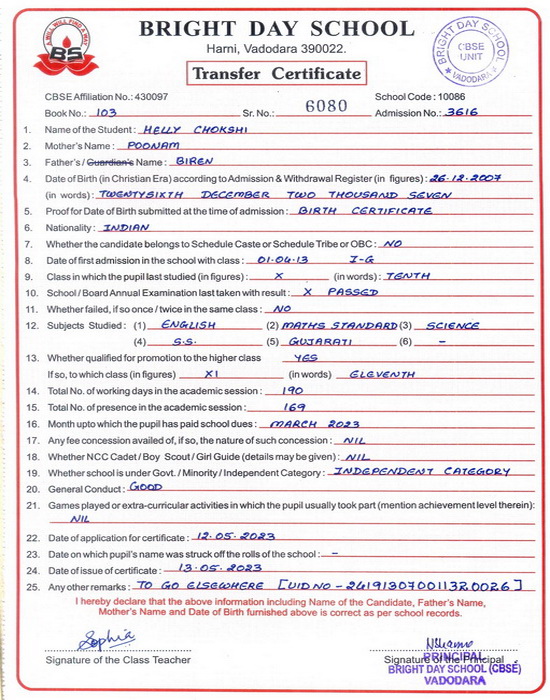 A WILL WILL FIND A WAY
BS
BRIGHT DAY SCHOOL
Harni, Vadodara 390022.
Transfer Certificate
BRIGHT DAY SCHOOL
CBSE
UNIT
VADODARA
CBSE Affiliation No.: 430097 School Code : 10086
Book No.: 103 Sr. No.: 6080 Admission No.: 3616
1. Name of the Student : HELLY CHOKSHI
2. Mother's Name : POONAM
3. Father's / Guardian's Name : BIREN
4. Date of Birth (in Christian Era) according to Admission & Withdrawal Register (in figures) : 26.12.2007
(in words) : TWENTYSIXTH DECEMBER TWO THOUSAND SEVEN
5. Proof for Date of Birth submitted at the time of admission : BIRTH CERTIFICATE
6. Nationality : INDIAN
7. Whether the candidate belongs to Schedule Caste or Schedule Tribe or OBC : NO
8. Date of first admission in the school with class : 01.04.13 I-G
9. Class in which the pupil last studied (in figures) : X (in words) : TENTH
10. School / Board Annual Examination last taken with result : X PASSED
11. Whether failed, if so once / twice in the same class : NO
12. Subjects Studied : (1) ENGLISH (2) MATHS STANDARD (3) SCIENCE
(4) S.S. (5) GUJARATI (6) -
13. Whether qualified for promotion to the higher class YES
If so, to which class (in figures) XI (in words) ELEVENTH
14. Total No. of working days in the academic session : 190
15. Total No. of presence in the academic session : 169
16. Month upto which the pupil has paid school dues : MARCH 2023
17. Any fee concession availed of, if so, the nature of such concession : NIL
18. Whether NCC Cadet / Boy Scout / Girl Guide (details may be given) : NIL
19. Whether school is under Govt. / Minority / Independent Category : INDEPENDENT CATEGORY
20. General Conduct : GOOD
21. Games played or extra-curricular activities in which the pupil usually took part (mention achievement level therein) :
NIL
22. Date of application for certificate : 12.05.2023
23. Date on which pupil's name was struck off the rolls of the school : -
24. Date of issue of certificate : 13.05.2023
25. Any other remarks : TO GO ELSEWHERE [UID NO - 241913070011320026]
I hereby declare that the above information including Name of the Candidate, Father's Name,
Mother's Name and Date of Birth furnished above is correct as per school records.
Sophia
Signature of the Class Teacher Signature of the Principal
PRINCIPAL
BRIGHT DAY SCHOOL (CBSE)
VADODARA